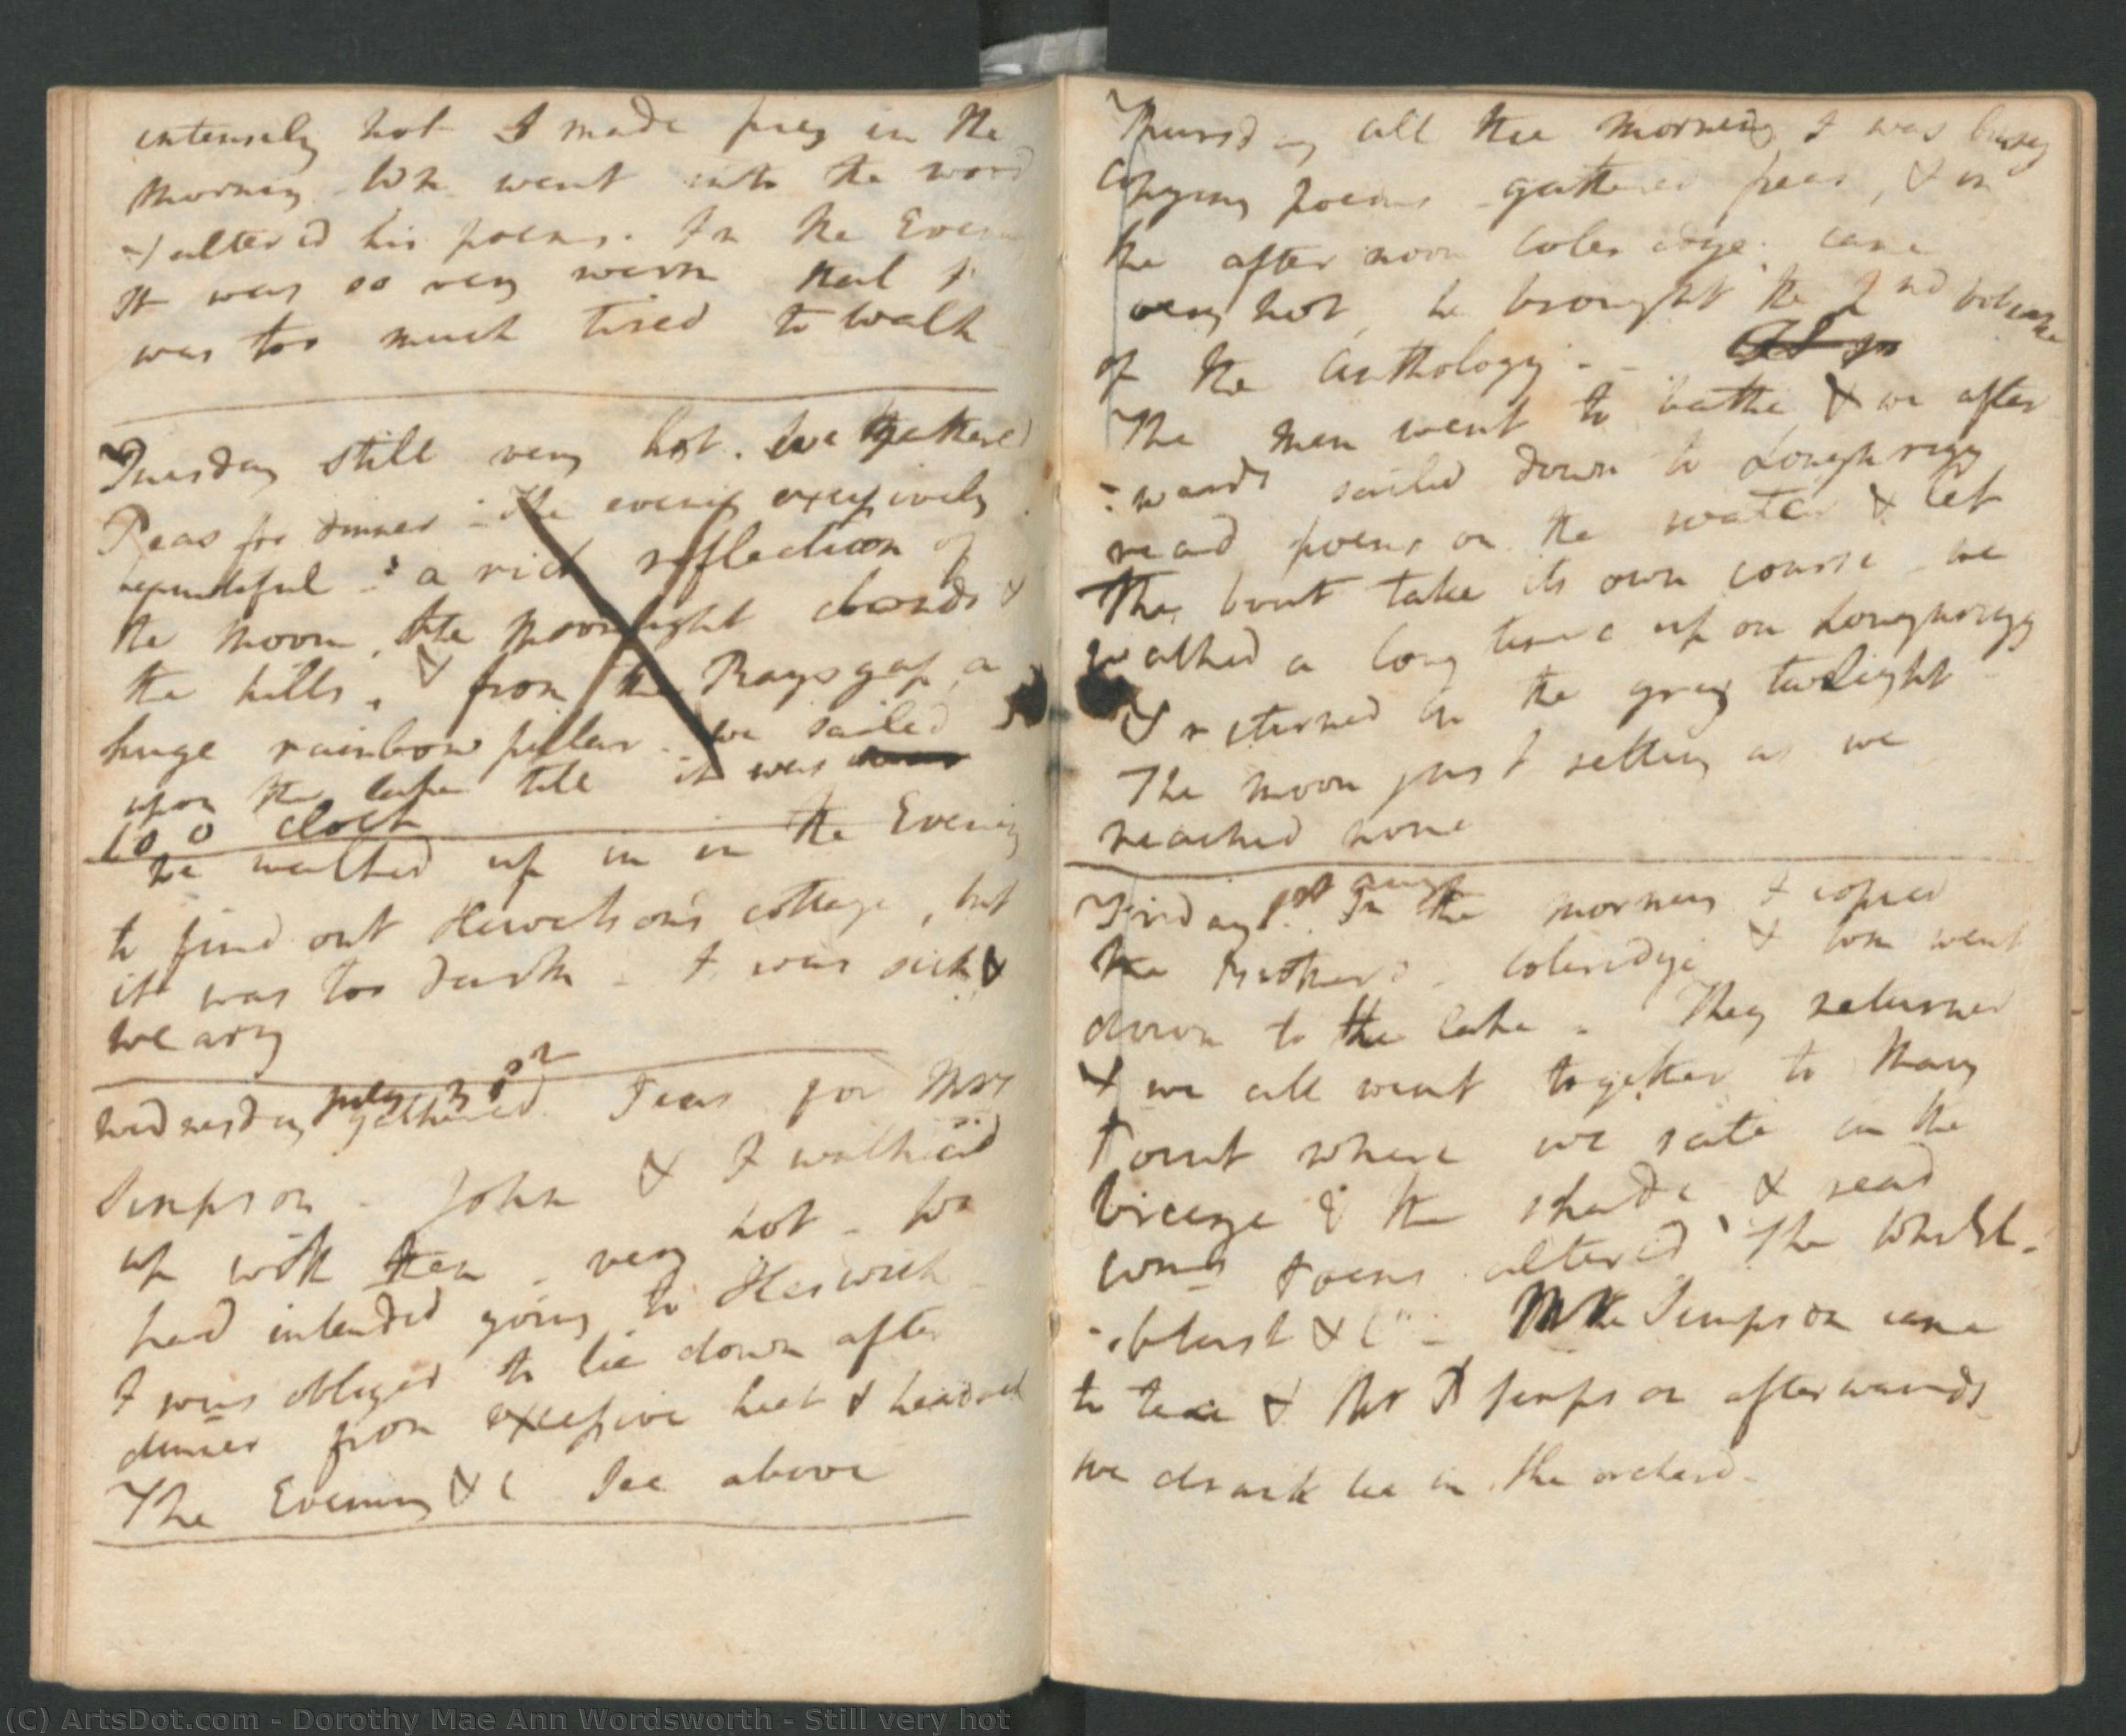 intensely hot I made pies in the
morning Wm went into the wood
& altered his poems. In the Evening
it was so very warm that I
was too much tired to walk
Tuesday still very hot. We gathered
Peas for dinner - The evening excessively
beautiful - a rich reflection of
the moon, the moonlight clouds &
the hills, & from the Rays gap a
huge rainbow pillar. We sailed
upon the lake till it was
10 o clock
we walked up in in the Evening
to find out Hewetson's cottage, but
it was too dark - I was sick &
weary
Wednesday July 30th gathered Peas for Mrs
Simpson - John & I walked
up with them - very hot - Wm
had intended going to Keswick -
I was obliged to lie down after
dinner from excessive heat & headach
The Evening &c See above
Thursday all the morning I was busy
copying poems - gathered peas, & in
the afternoon Coleridge came
very hot, he brought the 2nd volume
of the Anthology - -
The men went to bathe & we after
-wards sailed down to Loughrigg
read poems on the water & let
the boat take its own course - we
walked a long time up on Loughrigg
& returned in the grey twilight
The moon just setting as we
reached home
Friday 1st Augst In the morning I copied
the Brothers - Coleridge & Wm went
down to the lake - They returned
& we all went together to Mary
Point where we sate in the
breeze & the shade & read
Wms Poems altered "The Whirl-
-blast &c" - Mr Simpson came
to tea & Mr B Simpson afterwards
we drank tea in the orchard -
(C) ArtsDot.com - Dorothy Mae Ann Wordsworth - Still very hot